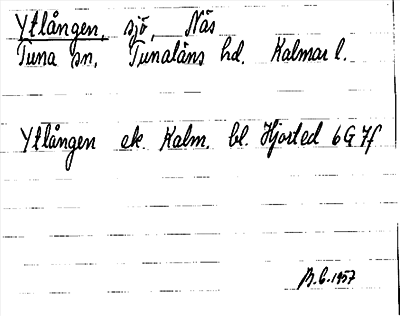 Ytlången, sjö, Näs
Tuna sn, Tunaläns hd. Kalmar l.
Ytlången ek. Kalm. bl. Hjorted 6G 7f
B.G. 1957